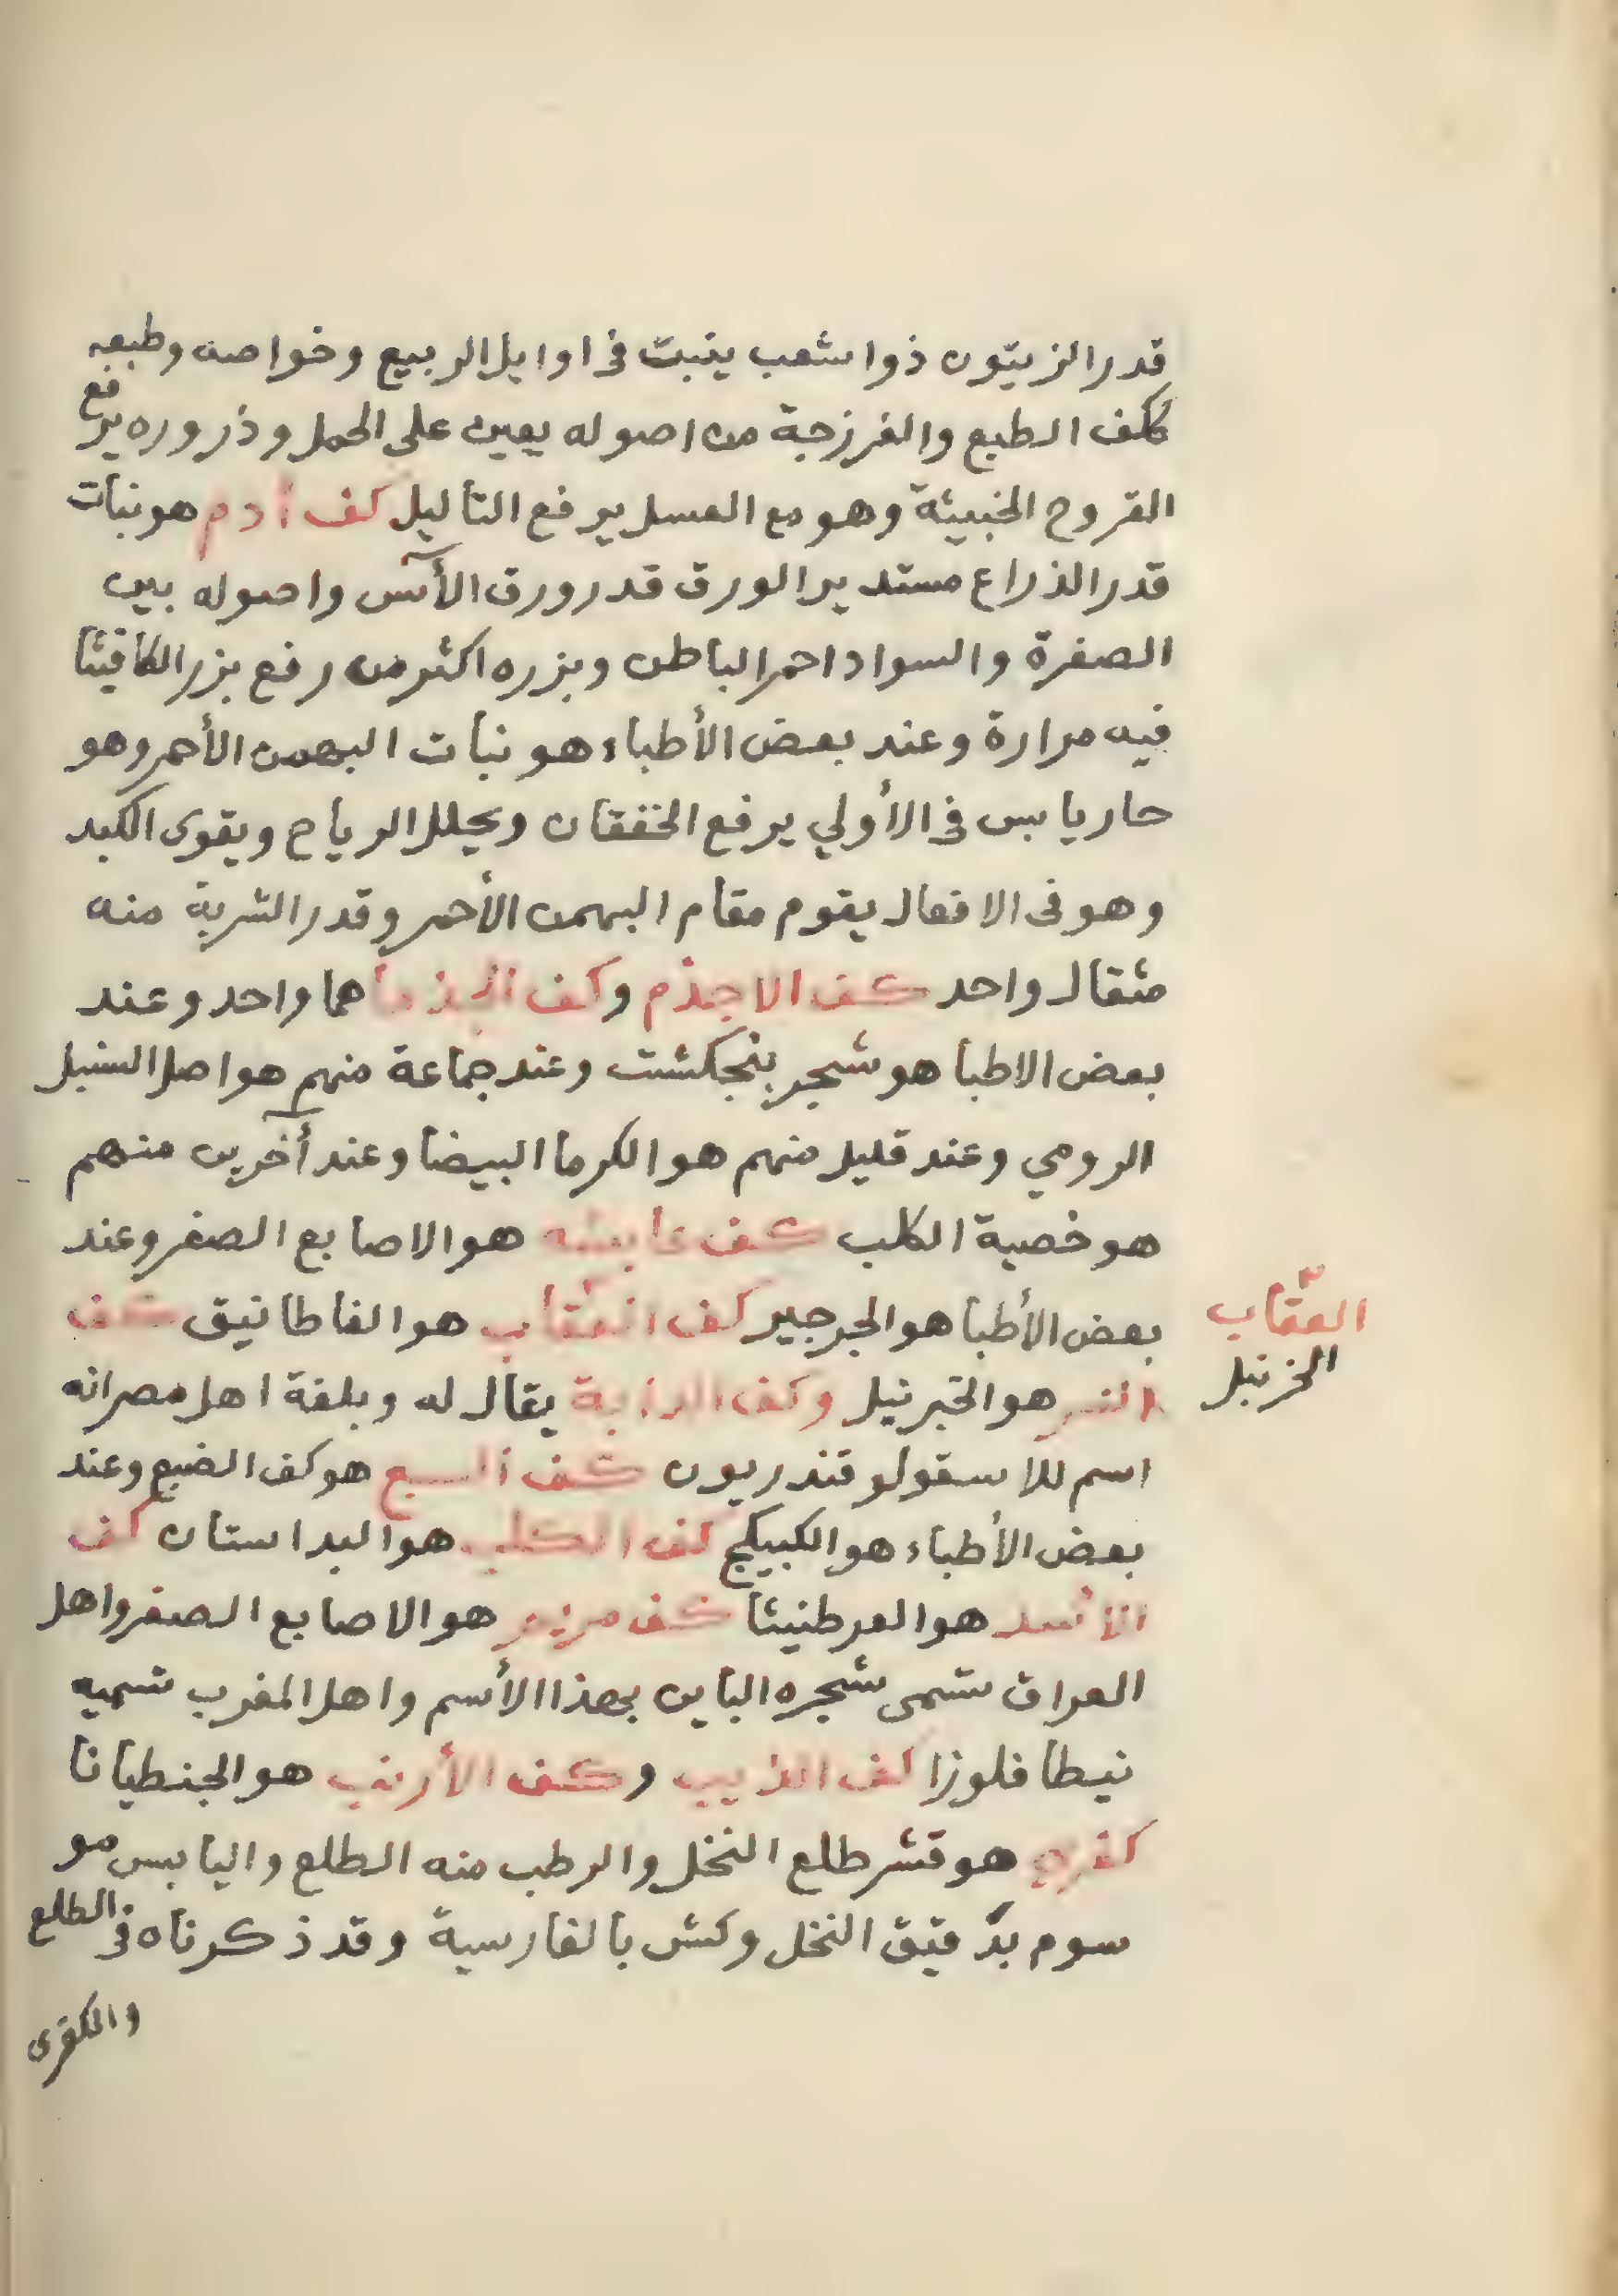 قدر الزيتون ذوا شعب ينبت فى اوايل الربيع وخواصه وطبعه
ككف الطبع والفرزجة من اصوله يعين على الحمل وذروره يرفع
القروح الخبيثة وهو مع العسل يرفع الثاليل كف آدم هو نبات
قدر الذراع مستدير الورق قدر ورق الأس واصوله بين
الصفرة والسواد احمر الباطن وبزره اكثر من رفع بزر الكافيثا
فيه مرارة وعند بعض الأطباء هو نبات البهمن الأحمر وهو
حار يابس فى الأولي يرفع الخفقان ويحلل الرياح ويقوى الكبد
وهو فى الافعال يقوم مقام البهمن الأحمر وقدر الشربة منه
مثقال واحد كف الاجذم وكف الجذما هما واحد وعند
بعض الاطبا هو شجر بنجكشت وعند جماعة منهم هو اصل السنبل
الرومي وعند قليل منهم هو الكرما البيضا وعند أخرين منهم
هو خصية الكلب كف عايشه هو الاصابع الصفر وعند
بعض الأطبا هو الجرجير كف العقاب هو الفاطانيق كف
النسر هو الخبرنيل وكف الدابة يقال له وبلغة اهل مصر انه
اسم للاسقولو قندريون كف السبع هو كف الضبع وعند
بعض الأطباء هو الكبيكج كف الكلب هو البداستان كف
الاسد هو العرطنيثا كف مريم هو الاصابع الصفر واهل
العراق تسمى شجره الباين بهذا الأسم واهل المغرب تسميه
نيطافلوزا كف الذيب وكف الأرنب هو الجنطيانا
كفرى هو قشر طلع النخل والرطب منه الطلع واليابس مو
سوم بدقيق النخل وكش بالفارسية وقد ذكرناه فى الطلع
والكفرى
العقاب
الخزنبل